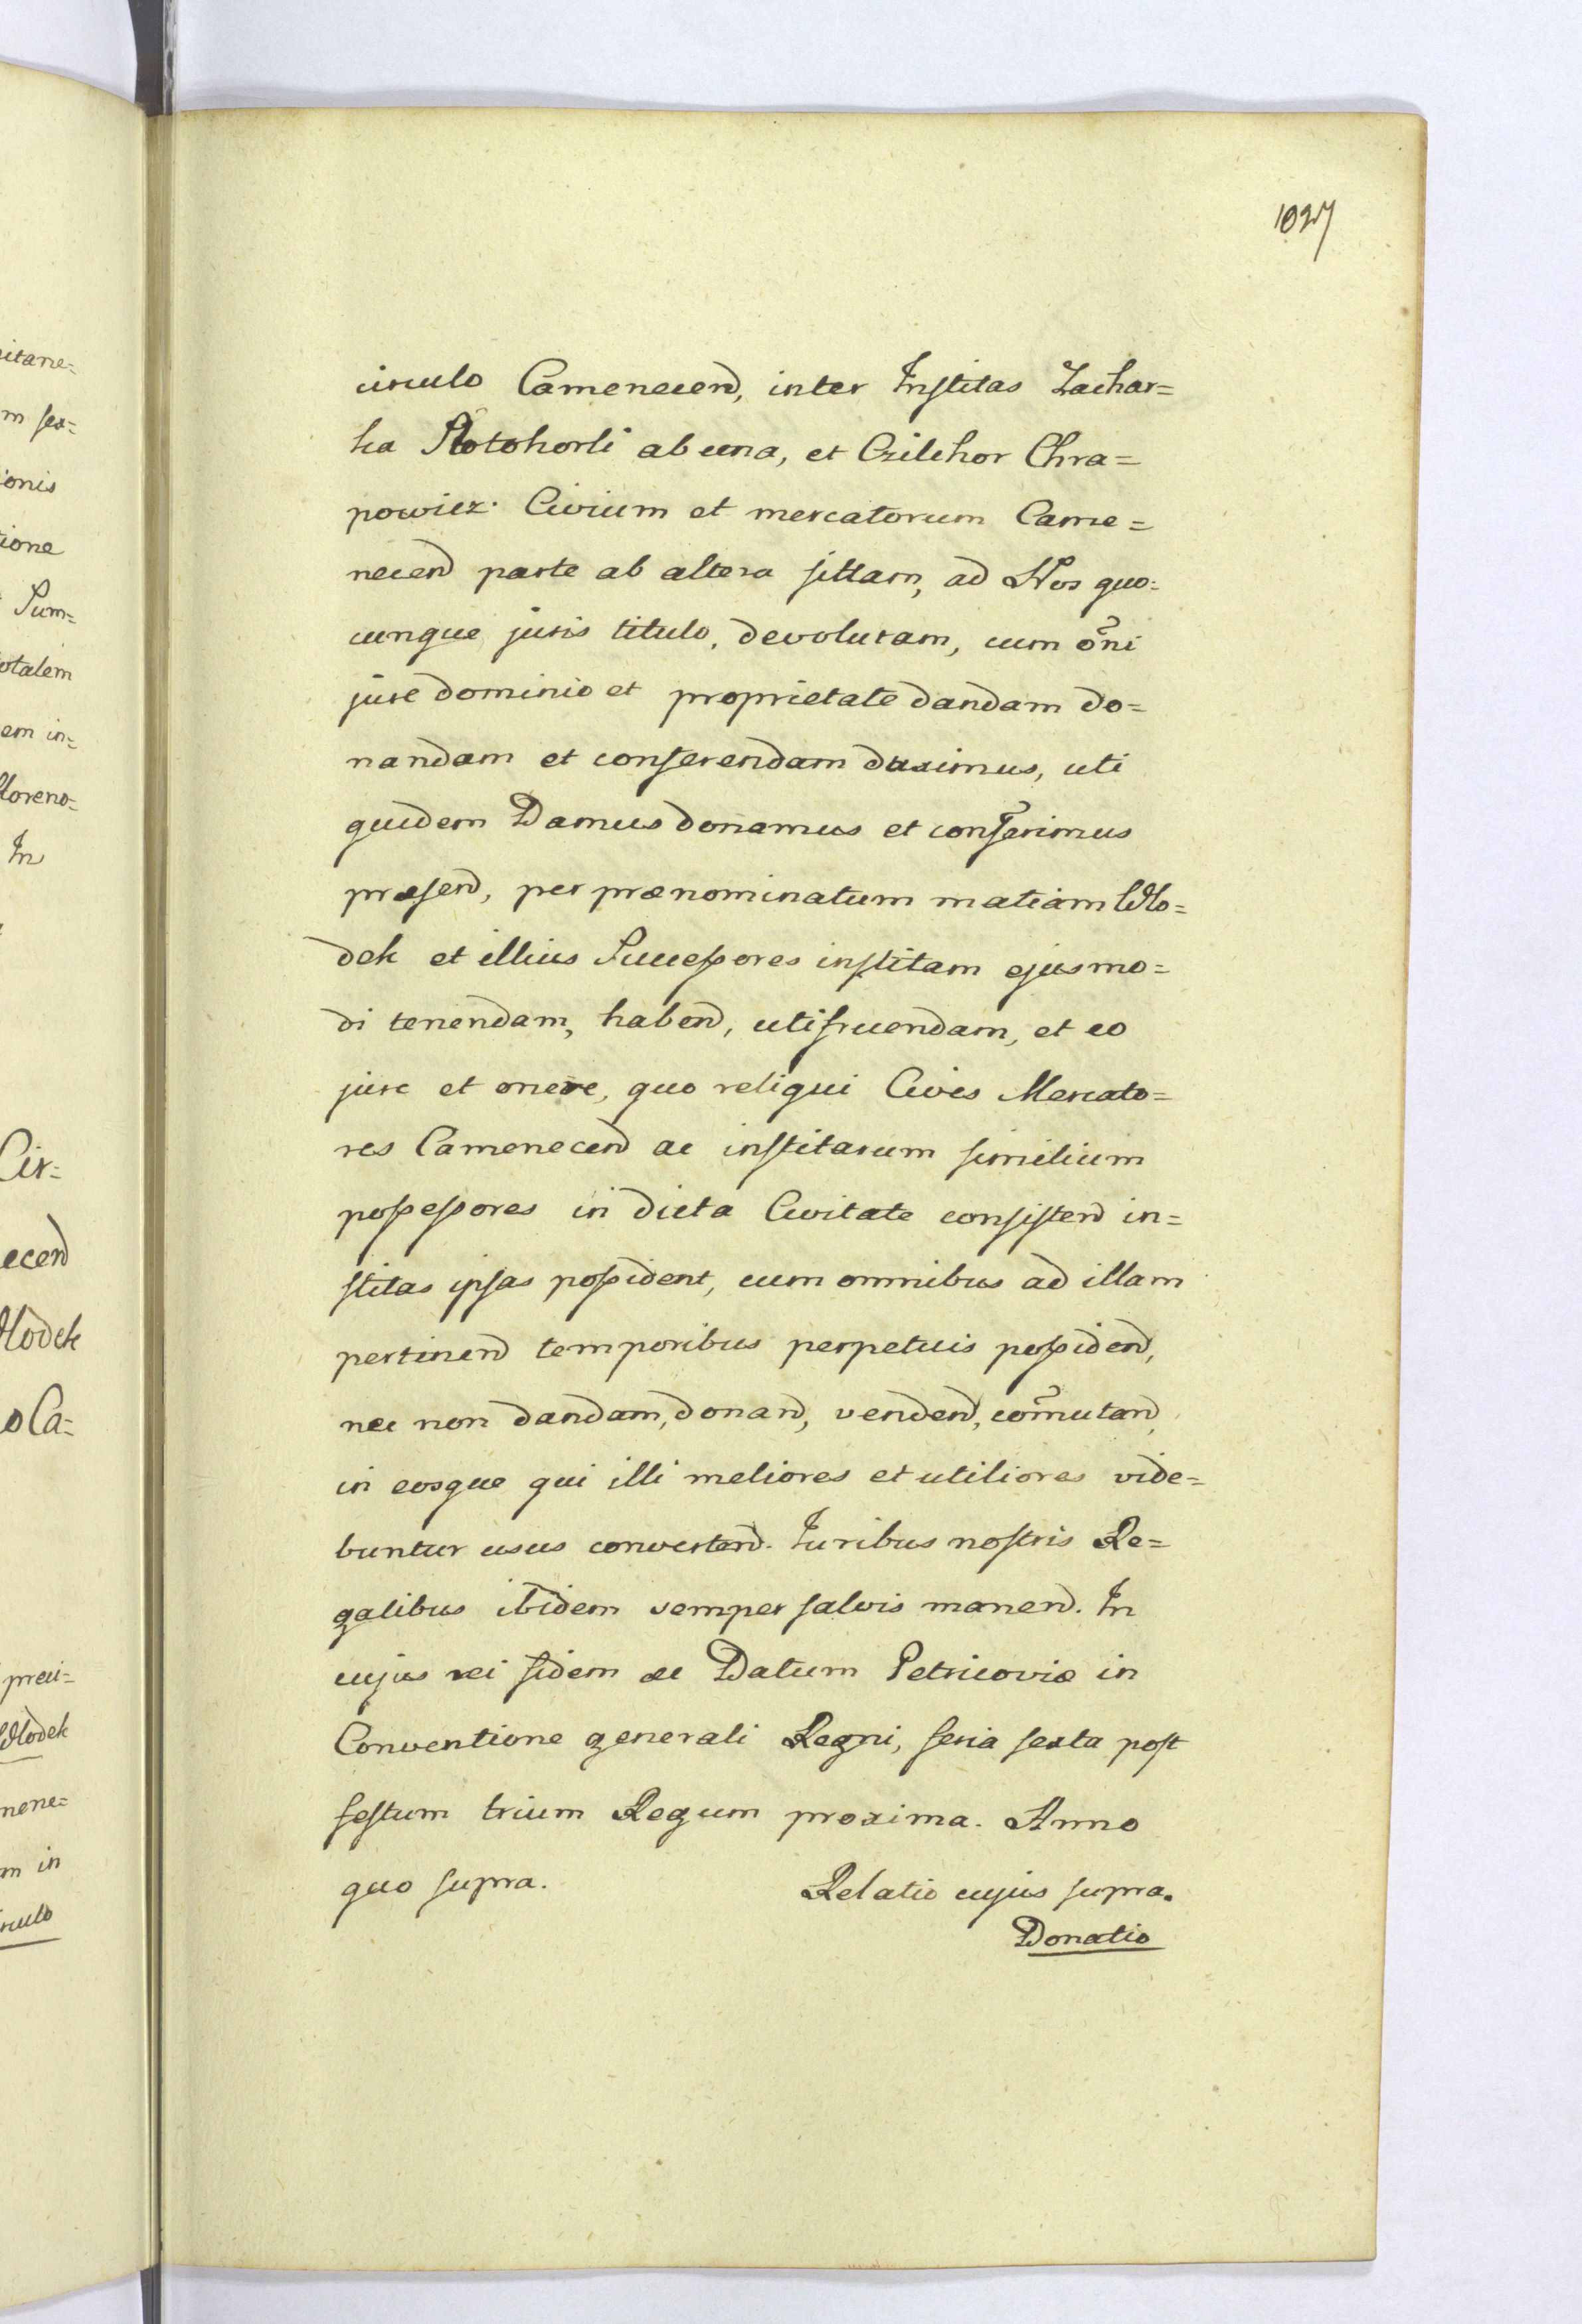 1027
circulo Camenecend, inter Institas Zachar=
ka Holohorli ab una, et Czilchor Chra=
powicz. Civium et mercatorum Came=
necend parte ab altera sittam, ad Nos quo=
cunque juris titulo, devolutam, cum õni
jure dominio et proprietate dandam do=
nandam et conferendam duximus, uti
quidem Damus donamus et conferimus
præsend, per prænominatum matiam Wło=
dek et illius Successores institam ejusmo=
di tenendam, habend, utifruendam, et eo
jure et onere, quo reliqui Cives Mercato=
res Camenecend ac institarum similium
possessores in dicta Civitate consistend in=
stitas ipsas possident, cum omnibus ad illam
pertinend temporibus perpetuis possidend,
nec non dandam, donand, vendend, com̃utand,
in eosque qui illi meliores et utiliores vide=
buntur usus convertend. Juribus nostris Re=
galibus ibidem semper salvis manend. In
cujus rei fidem ac Datum Petricoviæ in
Conventione generali Regni, feria sexta post
festum trium Regum proxima. Anno
quo supra. Relatio cujus supra.
Donatio
itane=
ionis
tione
Sum=
otalem
em in=
floreno=
In
Cir=
ecend
dlodek
o Ca=
preci=
Wlodek
mene=
m in
rculo